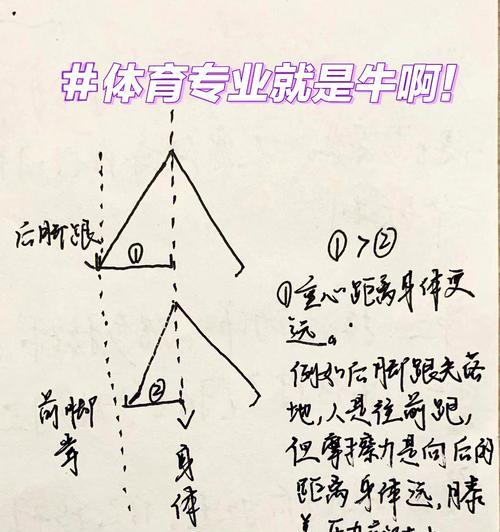 #体育专业就是牛啊!
后脚跟
①
①>②
①重心距离身体更
远。
例如后脚跟先落
地,人是往前跑,
但摩擦力是向后的
距离身体远,膝
②
前脚
掌
身
体